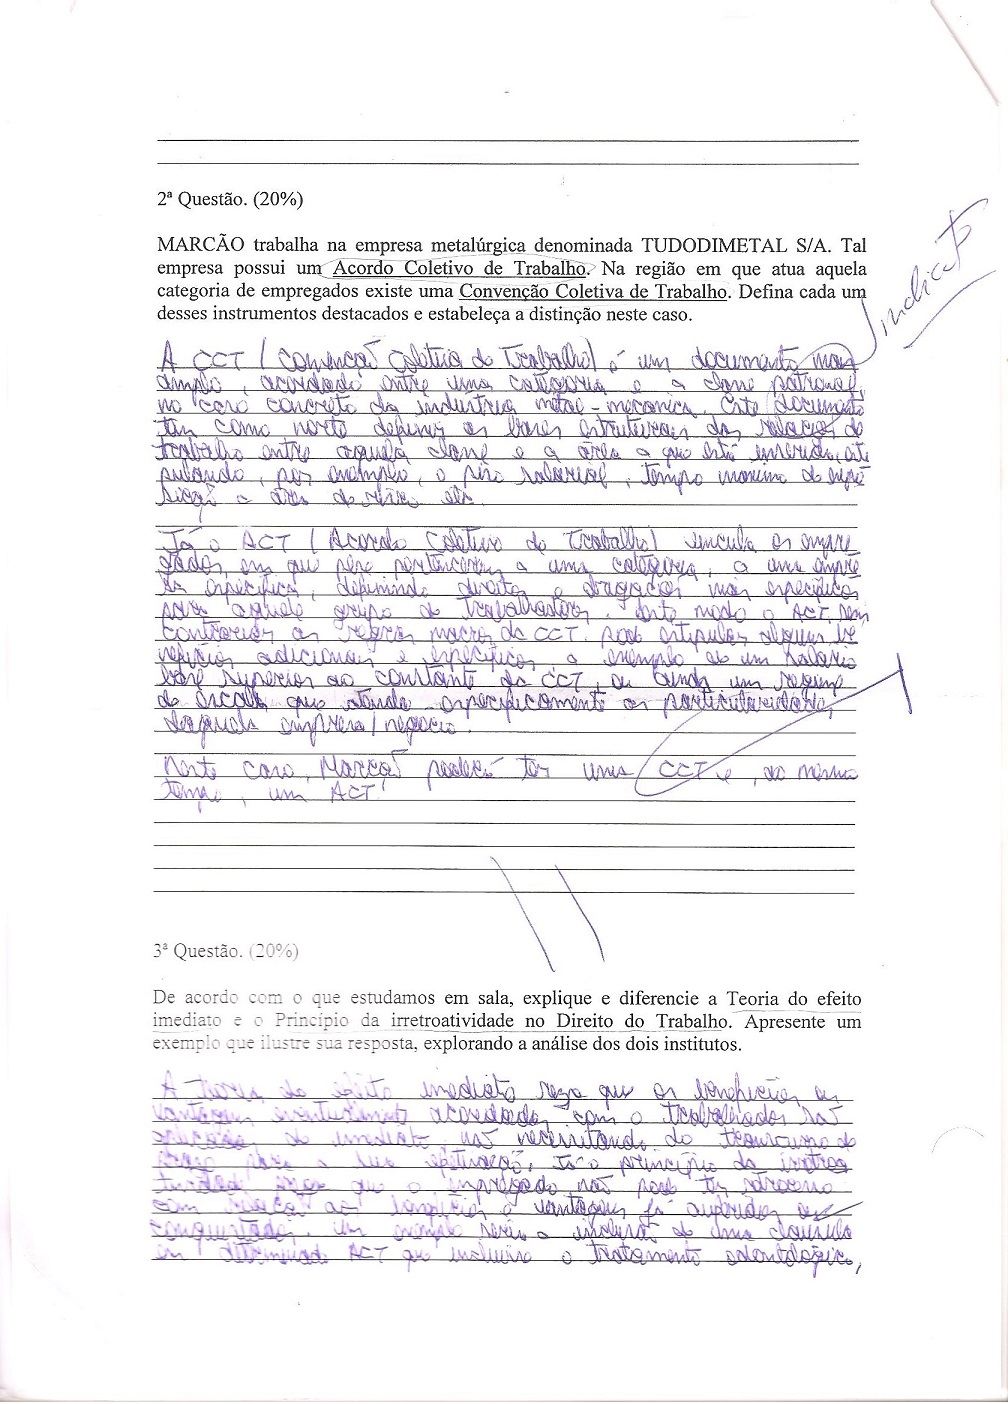 2ª Questão. (20%)
MARCÃO trabalha na empresa metalúrgica denominada TUDODIMETAL S/A. Tal
empresa possui um Acordo Coletivo de Trabalho. Na região em que atua aquela
categoria de empregados existe uma Convenção Coletiva de Trabalho. Defina cada um
desses instrumentos destacados e estabeleça a distinção neste caso.
Sindicato
A CCT (Convenção Coletiva de Trabalho) é um documento mais
amplo, acordado entre uma categoria e a classe patronal,
no caso concreto da indústria metal-mecânica. Este documento
tem como norte definir as bases estruturais das relações de
trabalho entre aquela classe e a área a que está inserida, esti
pulando, por exemplo, o piso salarial, tempo máximo de expo
sição a área de risco etc.
Já o ACT (Acordo Coletivo de Trabalho) vincula os empre
gados, em que pese pertencerem a uma categoria, a uma empre
sa específica, definindo direitos e obrigações mais específicos
para aquele grupo de trabalhadores. Deste modo o ACT, sem
contrariar as regras macro da CCT, pode estipular alguns be
nefícios adicionais e específicos, a exemplo de um salário
base superior ao constante da CCT, ou ainda um regime
de escala que atenda especificamente as particularidades
daquela empresa/negócio.
Neste caso, Marcão poderá ter uma CCT e, ao mesmo
tempo, um ACT.
3ª Questão. (20%)
De acordo com o que estudamos em sala, explique e diferencie a Teoria do efeito
imediato e o Princípio da irretroatividade no Direito do Trabalho. Apresente um
exemplo que ilustre sua resposta, explorando a análise dos dois institutos.
A teoria do efeito imediato reza que os benefícios ou
vantagens eventualmente acordados com o trabalhador são
aplicados de imediato, não necessitando do transcurso de
prazo para a sua efetivação. Já o princípio da irretroa
tividade reza que o empregado não pode ter retrocesso
com relação aos benefícios e vantagens já auferidos ou
conquistados. Um exemplo seria a inclusão de uma cláusula
em determinado ACT que incluísse o tratamento odontológico,